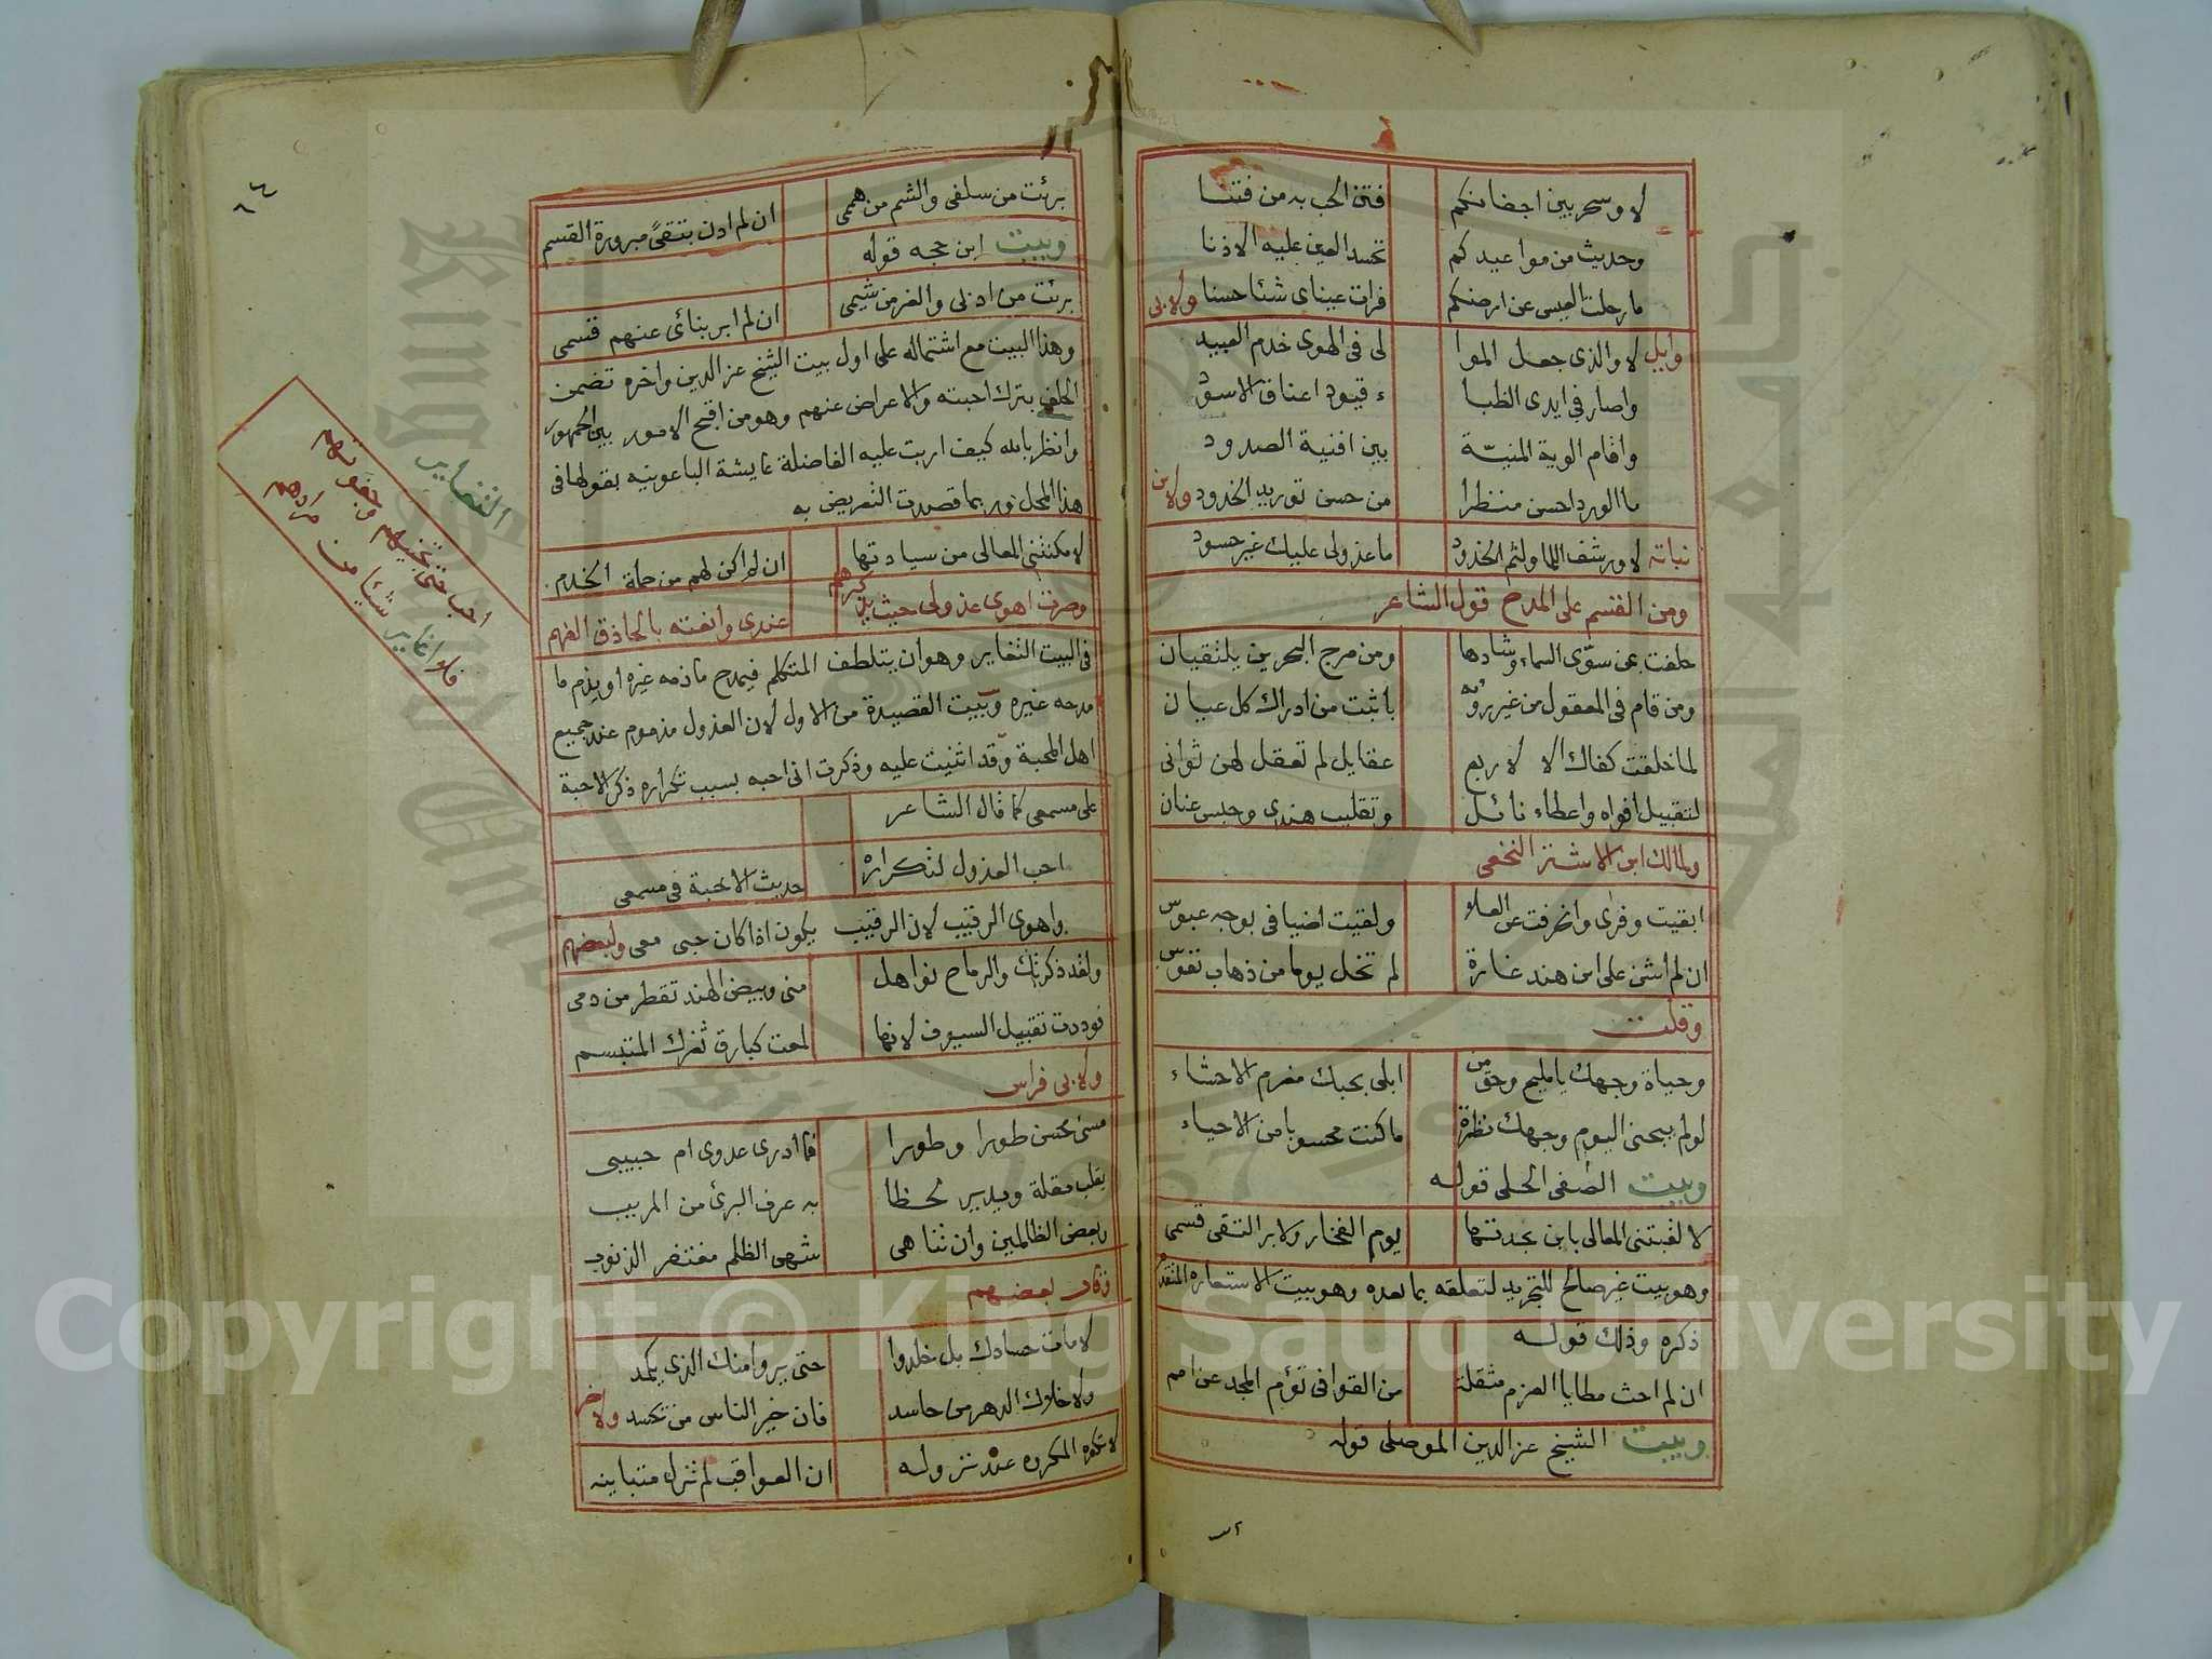 لا وسحر بين اجفانكم فتن الحب به من فتنا
وحديث من مواعيدكم تحسد العين عليه الاذنا
ما رحلت العيس عن ارضكم فرات عيناى شئا حسنا ولابى
وايل لا والذى جعل الموا لى فى الهوى خدم العبيد
واصار فى ايدى الظبا ء قيود اعناق الاسود
واقام الوية المنيّة بين افنية الصدود
ما الورد احسن منظرا من حسن توريد الخدود ولابن
نباته لا ورشف اللما ولثم الخدود ما عذولى عليك غير حسود
ومن القسم على المدح قول الشاعر
حلفت بمن سوّى السماء وشادها ومن مرج البحرين يلتقيان
ومن قام فى المعقول من غير رؤية باثبت من ادراك كل عيان
لما خلقت كفاك الا لاربع عقايل لم تعقل لهن ثوانى
لتقبيل افواه واعطاء نائل وتقليب هندى وحبس عنان
ولمالك ابن الاشتر النخعى
ابقيت وفرى وانحرفت عن العلا ولقيت اضيافى بوجه عبوس
ان لم اشن على ابن هند غارة لم تخل يوما من ذهاب نفوس
وقلت
وحياة وجهك يا مليح وحق من ابلى بحبك مغرم الاحشاء
لو لم يبحنى اليوم وجهك نظرة ما كنت محسوبا من الاحياء
وبيت الصفى الحلى قوله
لا لقبتنى المعالى بابن بجدتها يوم الفخار ولا بر التقى قسمى
وهو بيت غير صالح للتجريد لتعلقه بما بعده وهو بيت الاستعاره المتقدم
ذكره وذلك قوله
ان لم احث مطايا العزم مثقلة من القوافى تؤم المجد عن امم
وبيت الشيخ عز الدين الموصلى قوله
برئت من سلفى والشم من هممى ان لم ادن بتقىً مبرورة القسم
وبيت ابن حجه قوله
برئت من ادبى والغر من شيمى ان لم ابر بنائى عنهم قسمى
وهذا البيت مع اشتماله على اول بيت الشيخ عز الدين واخره تضمن
الحلف بترك احبته والاعراض عنهم وهو من اقبح الامور بين الجمهور
وانظر بالله كيف اربت عليه الفاضلة عايشة الباعونيه بقولها فى
هذا المحل وربما قصدت التعريض به
لا مكنتنى المعالى من سيادتها ان لم اكن لهم من جملة الخدم
وصرت اهوى عذولى حيث يذكرهم عندى وانعته بالحاذق الفهم
فى البيت التغاير وهو ان يتلطف المتكلم فيمدح ما ذمه غيره او يذم ما
مدحه غيره وبيت القصيدة من الاول لان العذول مذموم عند جميع
اهل المحبة وقد اثنيت عليه وذكرت انى احبه بسبب تكراره ذكر الاحبة
على مسمعى كما قال الشاعر
احب العذول لتكراره حديث الاحبة فى مسمعى
واهوى الرقيب لان الرقيب يكون اذا كان حبى معى ولبعضهم
ولقد ذكرتك والرماح نواهل منى وبيض الهند تقطر من دمى
فوددت تقبيل السيوف لانها لمعت كبارق ثغرك المتبسم
ولابى فراس
مسئ محسن طورا وطورا فما ادرى عدوى ام حبيبى
يقلب مقلة ويدير لحظا به عرف البرئ من المريب
وبعض الظالمين وان تناهى شهى الظلم مغتفر الذنوب
وقال بعضهم
لا مات حسادك بل خلدوا حتى يروا منك الذى يكمد
ولا خلاك الدهر من حاسد فان خير الناس من تحسد ولاخر
لا تكره المكروه عند نزوله ان العواقب لم تزل متباينه
التغاير
احب حتى تجنيهم وجفوتهم
فلا اغاير شيئا من مرادهم
٨٤